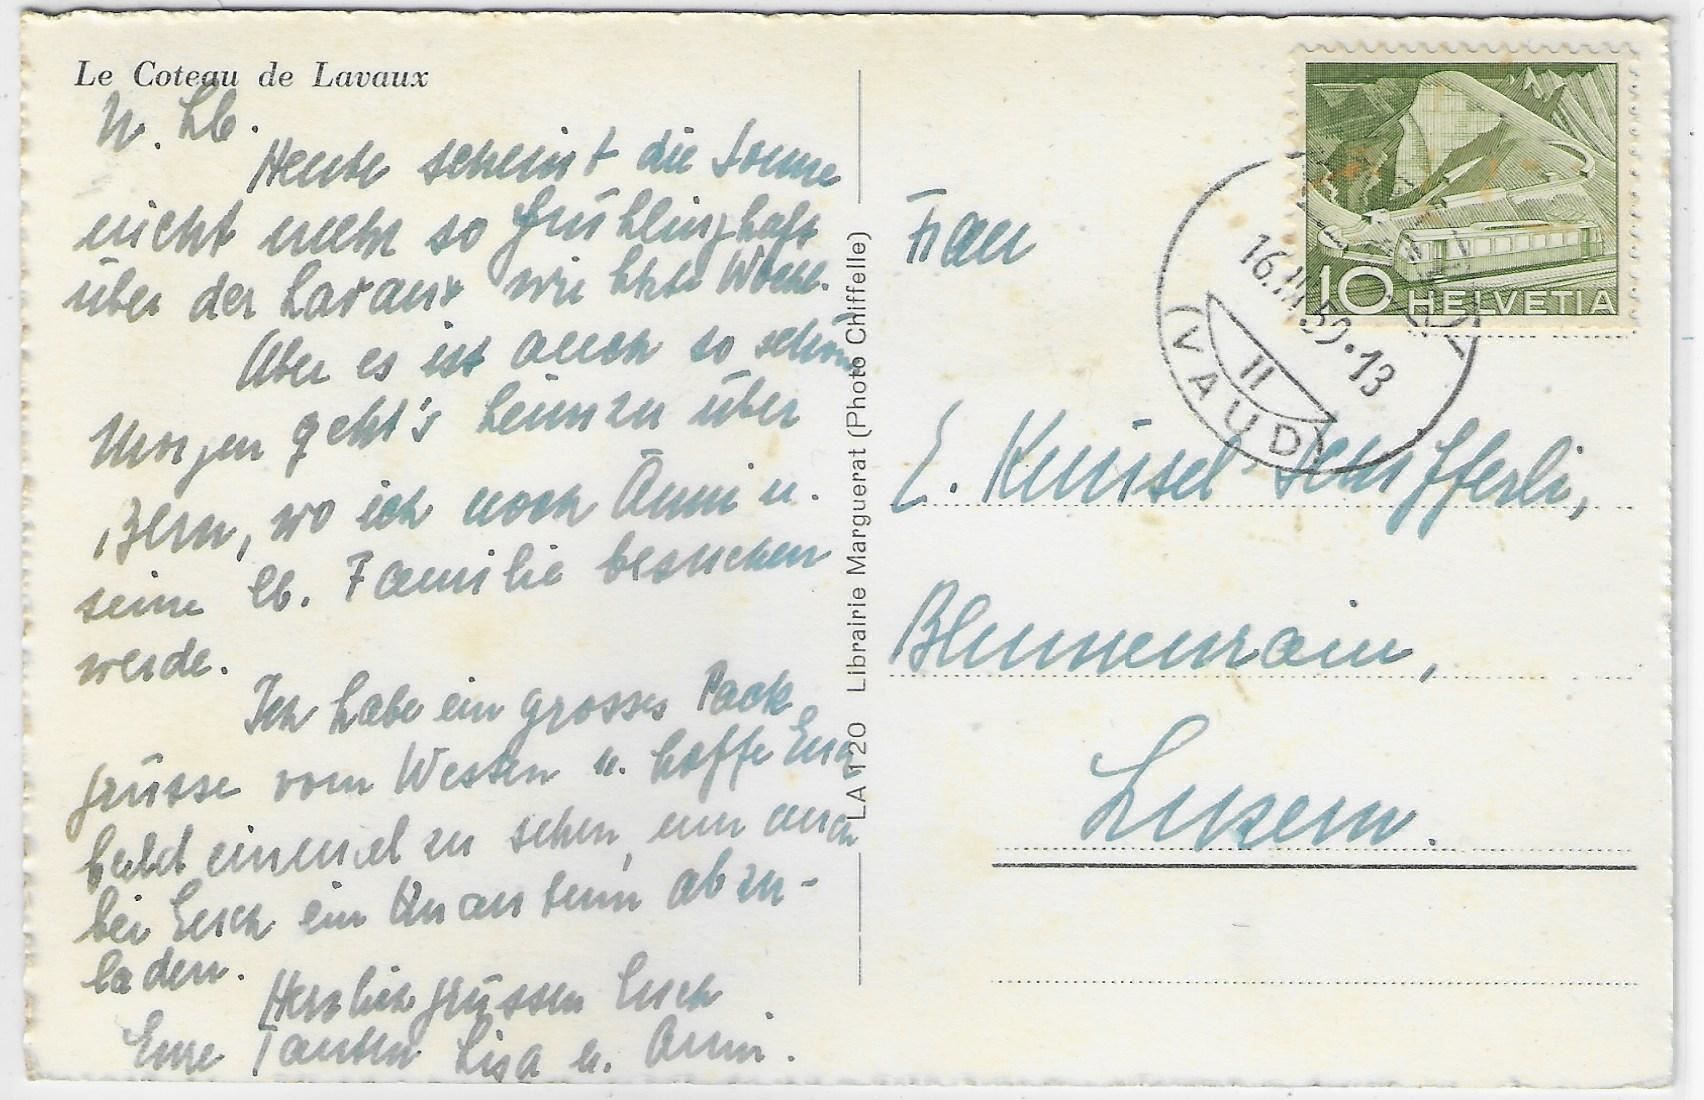 Le Coteau de Lavaux
M. Lb.
Heute scheint die Sonne
nicht mehr so frühlinghaft
über der Lavaux wie letzte Woche.
Aber es ist auch so schön.
Morgen geht's heimzu über
Bern, wo ich noch Änni u.
seine lb. Familie besuchen
werde.
Ich habe ein grosses Pack
Grüsse vom Westen u. hoffe Euch
bald einmal zu sehen, um auch
bei Euch ein Quantum abzu-
laden.
Herzlich grüssen Euch
Eure Tanten Lisa u. Anni.
LA 120 Librairie Marguerat (Photo Chiffelle)
10 HELVETIA
16.III.59.13
II
(VAUD)
Frau
E. Knüsel-Schifferli,
Blumenrain,
Luzern.